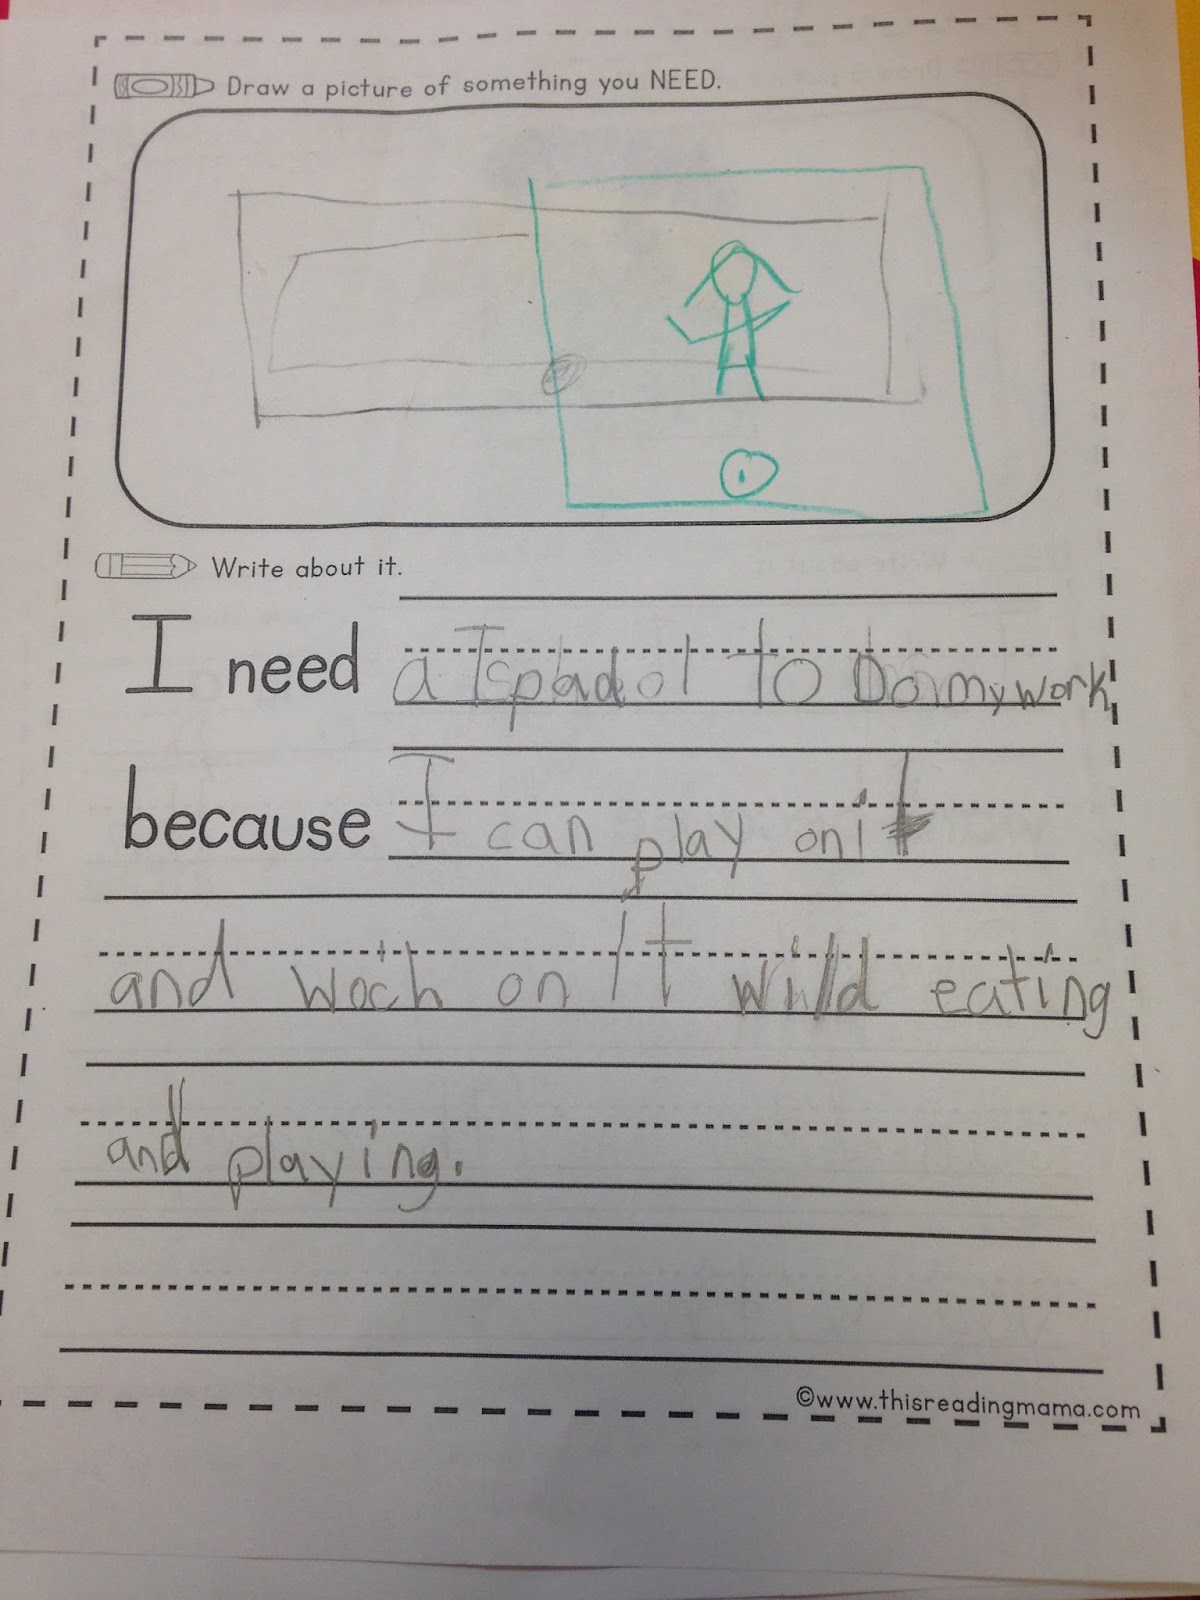 Draw a picture of something you NEED.
Write about it.
I need a to Do my work
because I can play on it
and woch on It willd eating
and playing.
©www.thisreadingmama.com